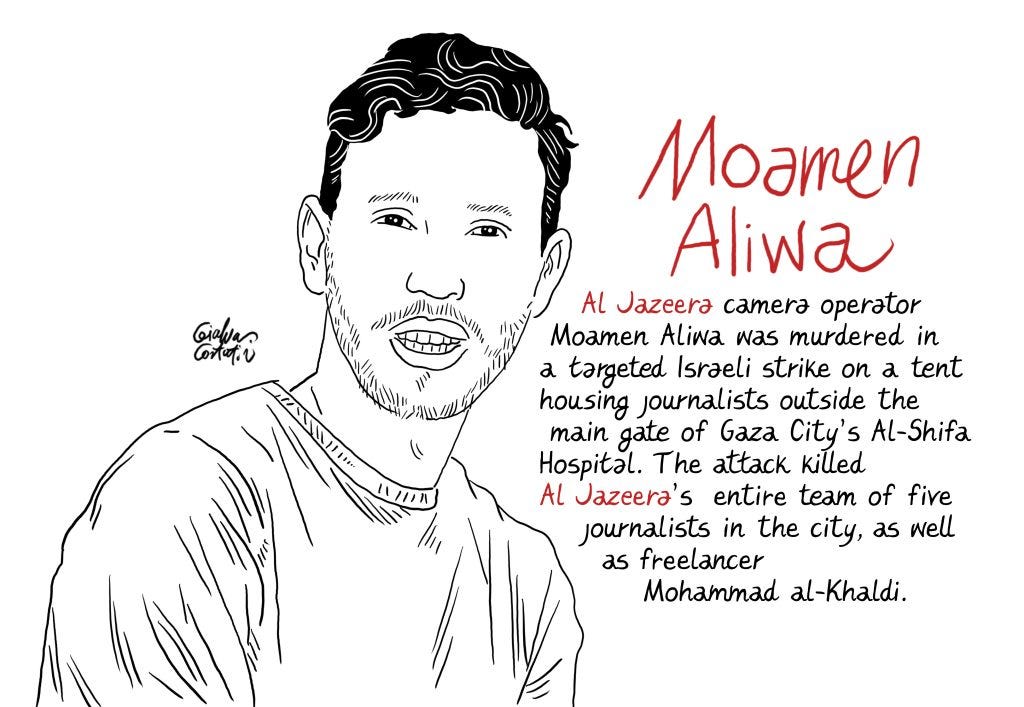 Moamen
Aliwa
Al Jazeera camera operator
Moamen Aliwa was murdered in
a targeted Israeli strike on a tent
housing journalists outside the
main gate of Gaza City's Al-Shifa
Hospital. The attack killed
Al Jazeera's entire team of five
journalists in the city, as well
as freelancer
Mohammad al-Khaldi.